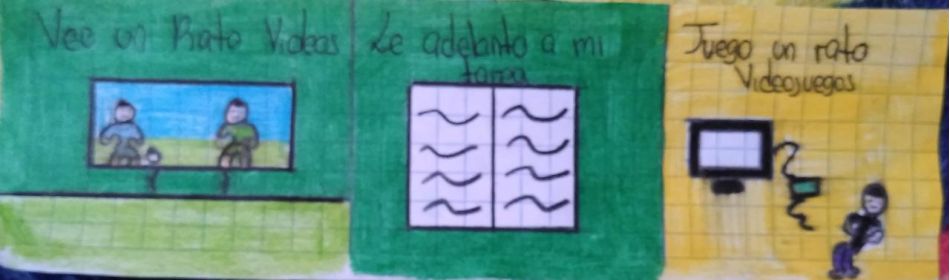 Veo un Rato Videos
Le adelanto a mi
tarea
Juego un rato
Videojuegos